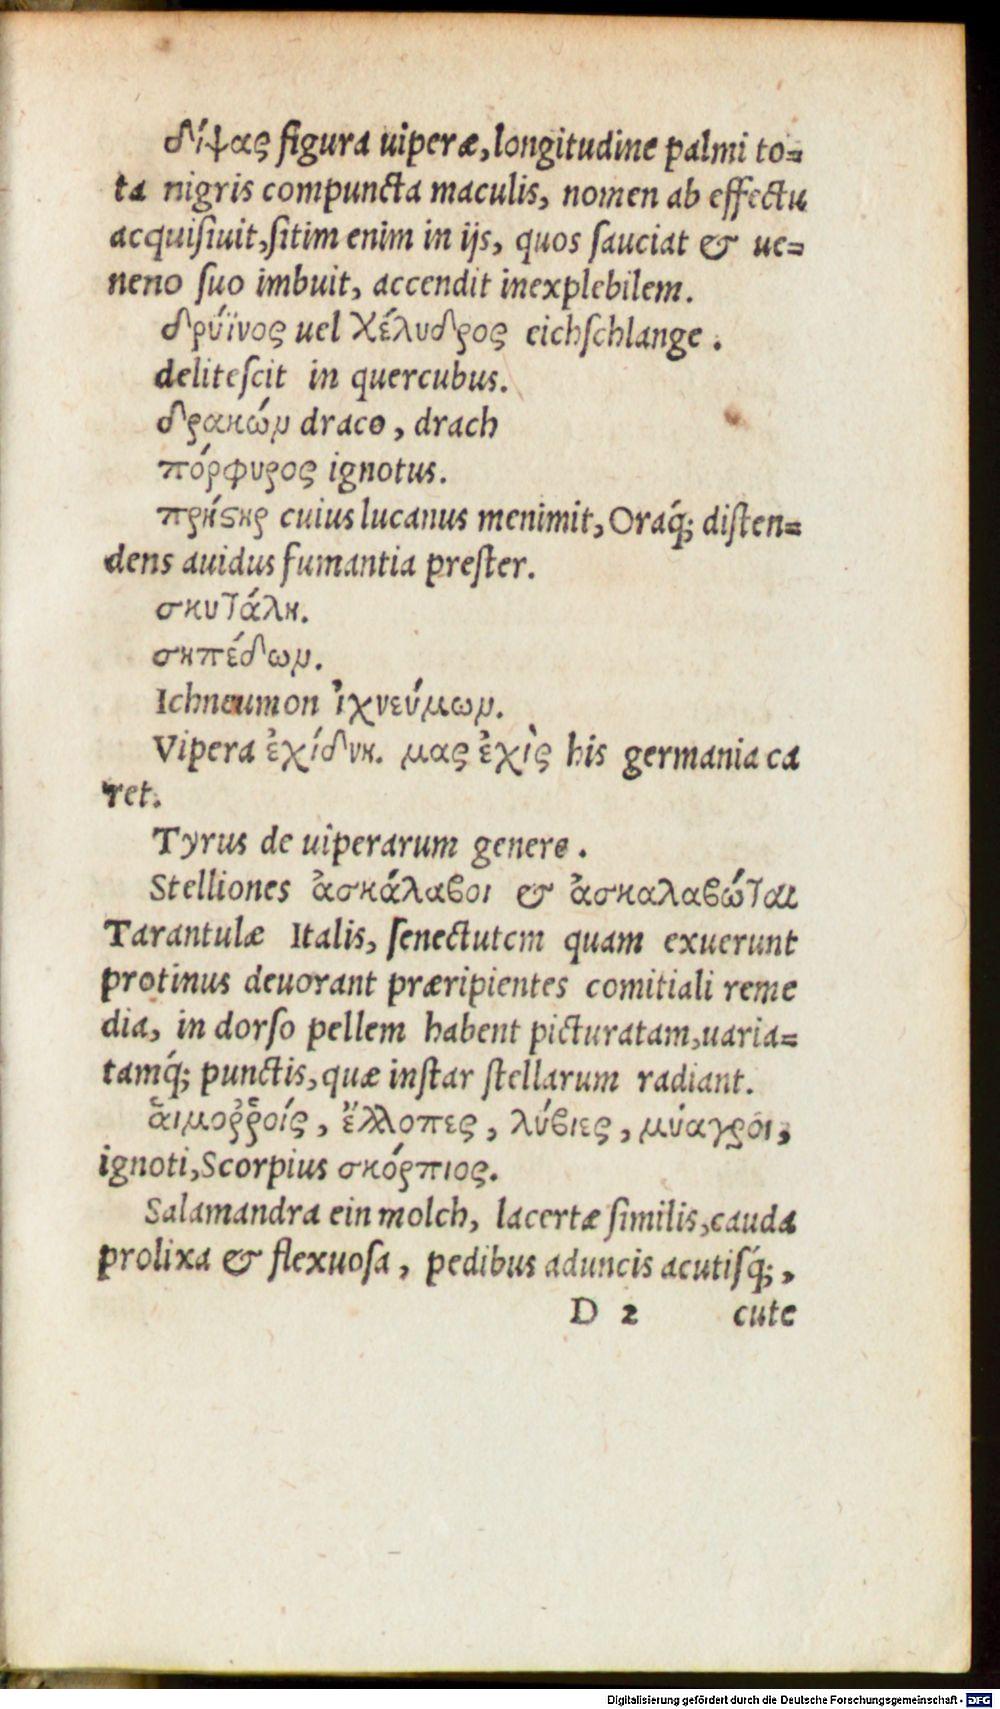 δίψας figura uiperæ, longitudine palmi to=
ta nigris compuncta maculis, nomen ab effectu
acquiſiuit, ſitim enim in ijs, quos ſauciat & ue=
neno ſuo imbuit, accendit inexplebilem.
δρύϊνος uel Χέλυδρος eichſchlange.
deliteſcit in quercubus.
δρακών draco, drach
πόρφυρος ignotus.
πρήϛηρ cuius lucanus menimit, Oraq́; diſten=
dens auidus fumantia preſter.
σκυτάλη.
σηπέδων.
Ichneumon ἰχνεύμων.
Vipera ἐχίδνη. μας ἐχὶς his germania ca
ret.
Tyrus de uiperarum genere.
Stelliones ἀσκάλαβοι & ἀσκαλαβώται
Tarantulæ Italis, ſenectutem quam exuerunt
protinus deuorant præripientes comitiali reme
dia, in dorſo pellem habent picturatam, uaria=
tamq́; punctis, quæ inſtar ſtellarum radiant.
ἃιμοῤῥοίς, ἔλλοπες, λύβιες, μύαγροι,
ignoti, Scorpius σκόρπιος.
Salamandra ein molch, lacertæ ſimilis, cauda
prolixa & flexuoſa, pedibus aduncis acutiſq́;,
D 2 cute
Digitalisierung gefördert durch die Deutsche Forschungsgemeinschaft - DFG